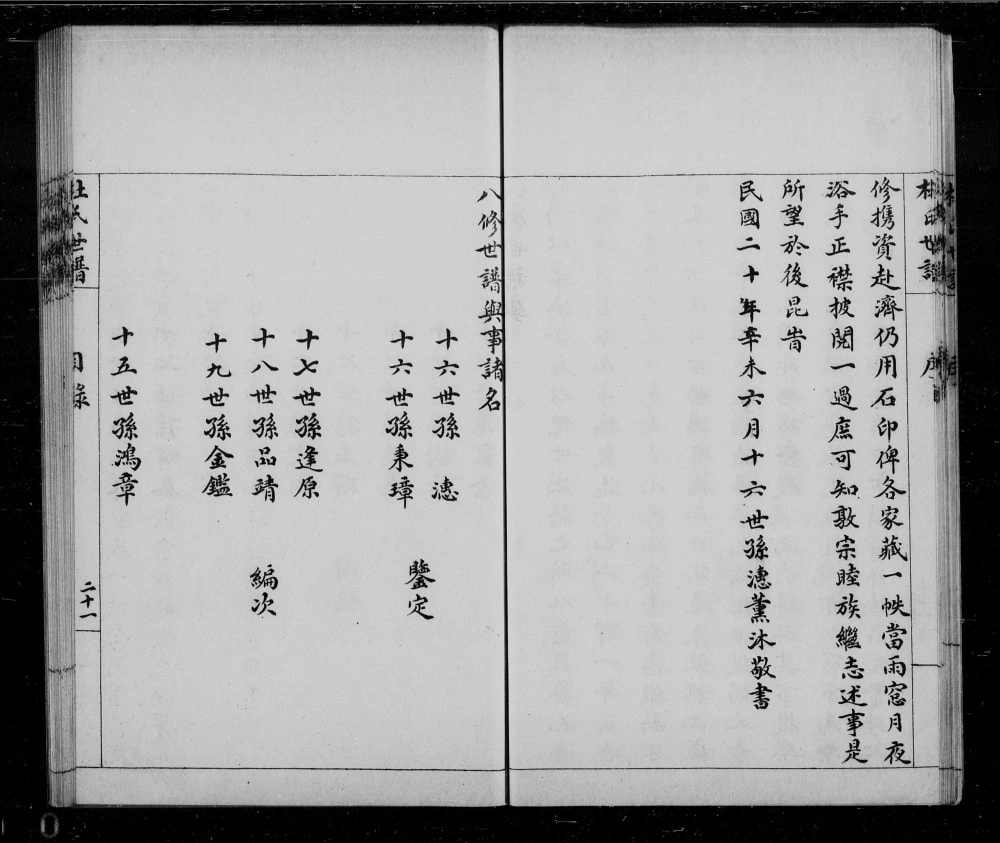 杜氏世譜
序
修攜資赴濟仍用石印俾各家藏一帙當雨窓月夜
浴手正襟披閱一過庶可知敦宗睦族繼志述事是
所望於後昆昔
民國二十年辛未六月十六世孫漶薰沐敬書
八修世譜與事諸名
十六世孫 漶
十六世孫秉璋
鑒定
十七世孫逢原
十八世孫品靖
編次
十九世孫金鑑
十五世孫鴻章
杜氏世譜
目錄
二十一